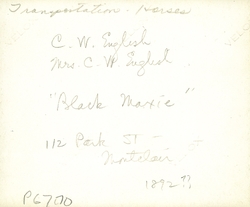 Transportation - Horses
C. W. English
Mrs. C. W. English
"Black Maxie"
112 Park St -
Montclair
1892??
P6700